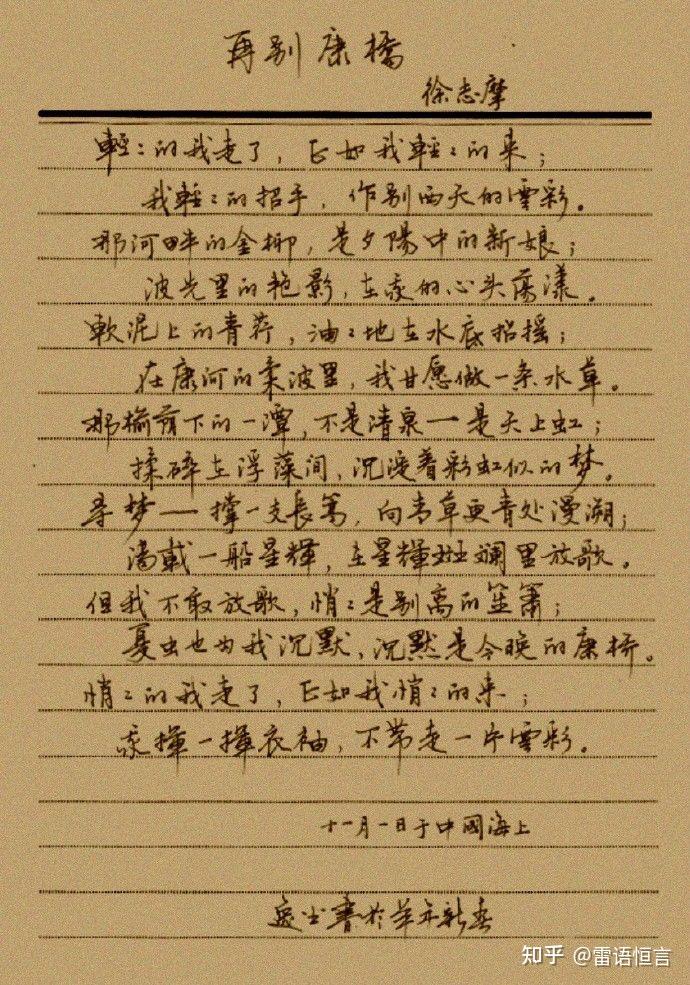 再别康橋
徐志摩
輕〻的我走了，正如我輕〻的来；
我輕〻的招手，作别西天的雲彩。
那河畔的金柳，是夕陽中的新娘；
波光里的艳影，在我的心头蕩漾。
軟泥上的青荇，油〻地在水底招摇；
在康河的柔波里，我甘愿做一条水草。
那榆荫下的一潭，不是清泉—是天上虹；
揉碎在浮藻间，沉淀着彩虹似的梦。
寻梦—撑一支長篙，向青草更青处漫溯；
满载一船星輝，在星輝斑斓里放歌。
但我不敢放歌，悄〻是别离的笙箫；
夏虫也为我沉默，沉默是今晚的康桥。
悄〻的我走了，正如我悄〻的来；
我揮一揮衣袖，不带走一片雲彩。
十一月一日于中國海上
書於羊年新春
知乎 @雷语恒言